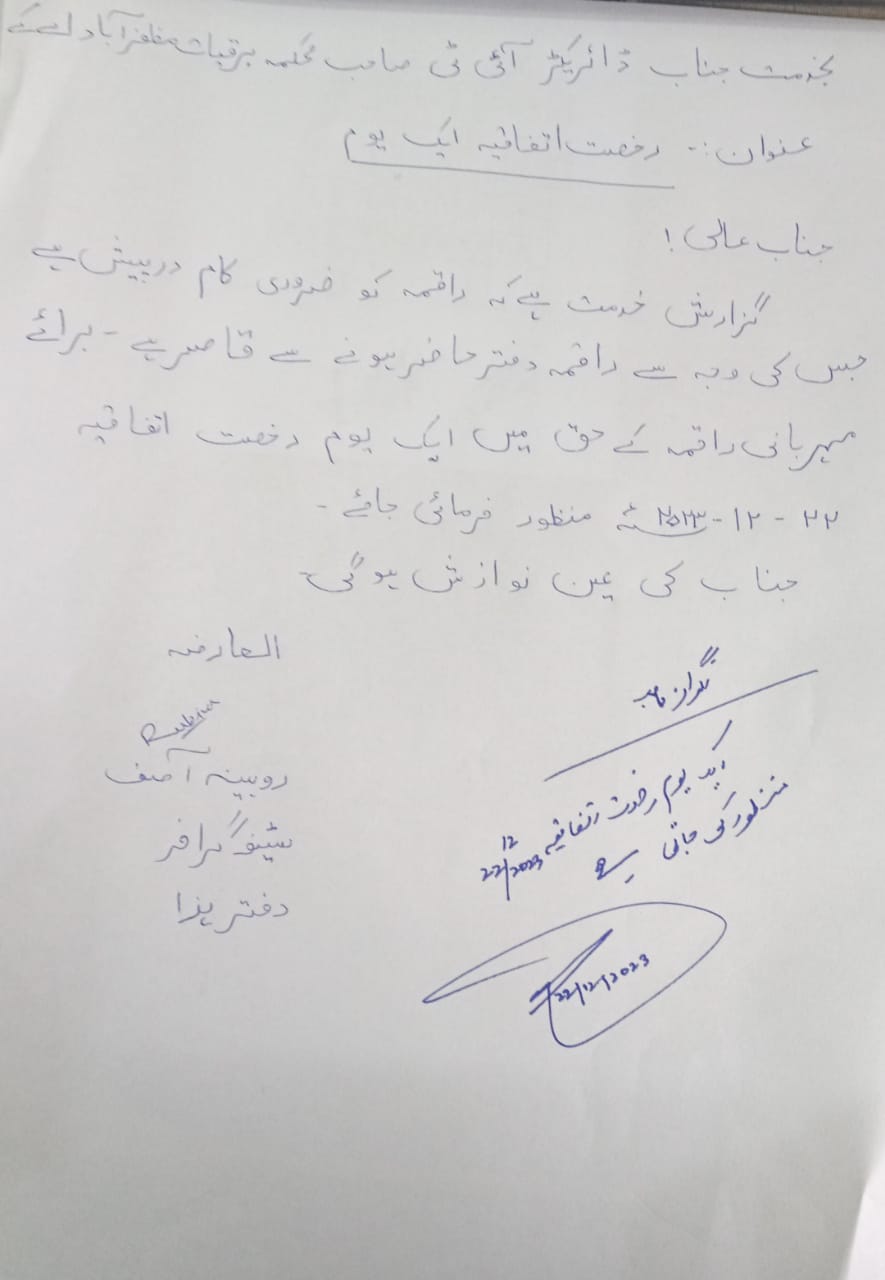 بخدمت جناب ڈائریکٹر آئی ٹی صاحب محکمہ برقیات مظفرآباد اے کے
عنوان:- رخصت اتفاقیہ ایک یوم
جناب عالی!
گزارش خدمت ہے کہ راقمہ کو ضروری کام درپیش ہے
جس کی وجہ سے راقمہ دفتر حاضر ہونے سے قاصر ہے - برائے
مہربانی راقمہ کے حق میں ایک یوم رخصت اتفاقیہ
۲۲ - ۱۲ - ۲۰۲۳ء منظور فرمائی جائے -
جناب کی عین نوازش ہوگی-
العارضہ
روبینہ آصف
سٹینوگرافر
دفتر ہذا
نگران
ایک یوم رخصت اتفاقیہ 22/12/2023
منظور کی جاتی ہے
22/12/2023